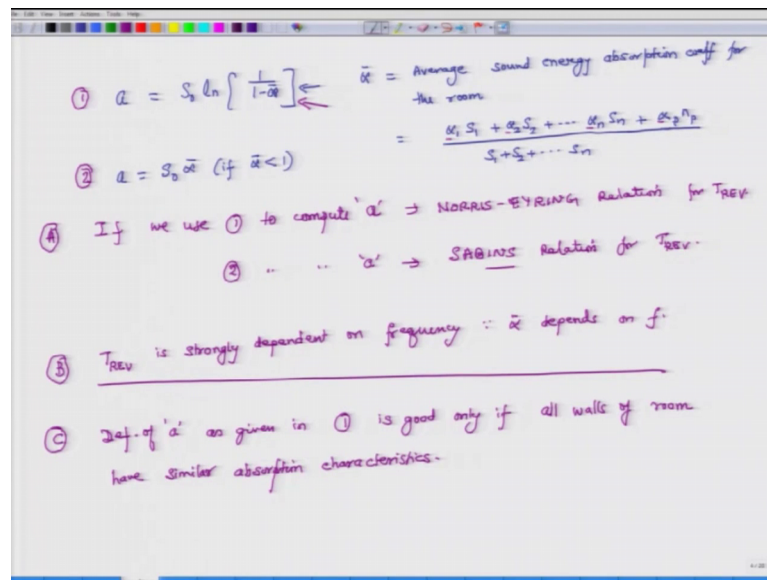 File Edit View Insert Actions Tools Help
① a = S₀ ln [ 1/(1-ᾱ) ] ← ←   ᾱ = Average sound energy absorption coeff for
the room
= (α₁ S₁ + α₂ S₂ + ... αₙ Sₙ + αₚ nₚ) / (S₁ + S₂ + ... Sₙ)
② a = S₀ ᾱ (if ᾱ < 1)
Ⓐ If we use ① to compute 'a' → NORRIS-EYRING Relation for T_REV.
② " " 'a' → SABINS Relation for T_REV.
Ⓑ T_REV is strongly dependent on frequency ∵ ᾱ depends on f.
Ⓒ Def. of 'a' as given in ① is good only if all walls of room
have similar absorption characteristics.